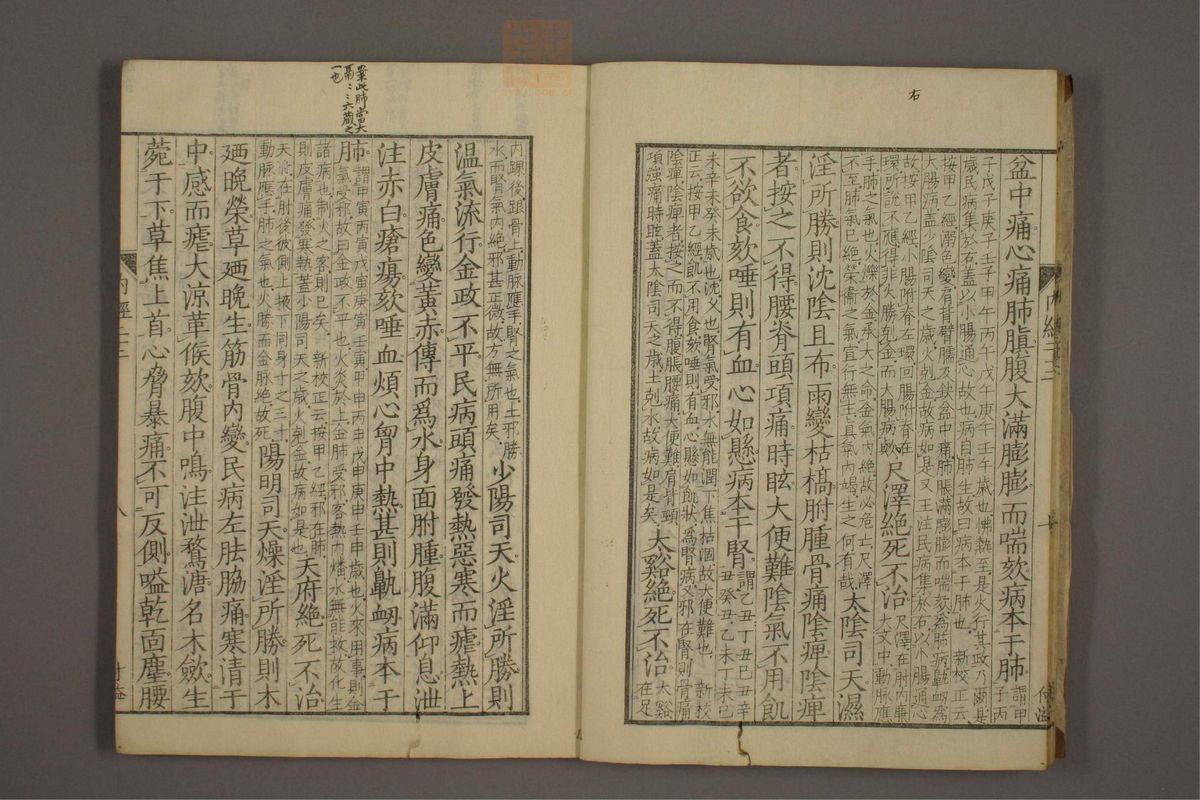 右
盆中痛心痛肺䐜腹大滿膨膨而喘欬病本于肺謂甲子丙
子戊子庚子壬子甲午丙午戊午庚午壬午歲也怫熱至是火行其政乃爾是
歲民病集於右蓋以小腸通心故也病自肺生故曰病本于肺也 新校正云
按甲乙經溺色變肩背臂臑及缺盆中痛肺脹滿膨膨而喘欬為肺病鼽衂為
大腸病蓋少陰司天之歲火剋金故病如是又王注民病集於右以小腸通心
故按甲乙經小腸附脊左環回腸附脊左
環所說不應得非火勝剋金而大腸病歟尺澤絶死不治尺澤在肘内廉
大文中動脈應
手肺之氣也火爍於金承天之命金氣内絶故必危亡尺澤
不至肺氣已絶榮衞之氣宣行無主真氣内竭生之何有哉太陰司天濕
淫所勝則沈陰且布雨變枯槁胕腫骨痛陰痺陰痺
者按之不得腰脊頭項痛時眩大便難陰氣不用飢
不欲食欬唾則有血心如懸病本于腎謂乙丑丁丑巳丑辛
丑癸丑乙未丁未巳
未辛未癸未歲也沈久也腎氣受邪水無能潤下焦枯涸故大便難也 新校
正云按甲乙經飢不用食欬唾則有血心懸如飢狀為腎病又邪在腎則骨痛
陰痺陰痺者按之而不得腹脹腰痛大便難肩背頸
項強痛時眩蓋太陰司天之歲土剋水故病如是矣太谿絶死不治太谿
在足
内踝後跟骨上動脈應手腎之氣也土邪勝
水而腎氣内絶邪甚正微故方無所用矣少陽司天火淫所勝則
温氣流行金政不平民病頭痛發熱惡寒而瘧熱上
皮膚痛色變黃赤傳而爲水身面胕腫腹滿仰息泄
注赤白瘡瘍欬唾血煩心胷中熱甚則鼽衂病本于
肺謂甲寅丙寅戊寅庚寅壬寅甲申丙申戊申庚申壬申歲也火來用事則金
氣受邪故曰金政不平也火炎於上金肺受邪客熱内燔水無能救故化生
諸病也制火之客則已矣 新校正云按甲乙經邪在肺
則皮膚痛發寒熱蓋少陽司天之歲火剋金故病如是也天府絶死不治
天府在肘後彼側上掖下同身寸之三寸
動脈應手肺之氣也火勝而金脈絶故死陽明司天燥淫所勝則木
廼晚榮草廼晚生筋骨内變民病左胠脇痛寒清于
中感而瘧大涼革候欬腹中鳴注泄鶩溏名木斂生
菀于下草焦上首心脅暴痛不可反側嗌乾面塵腰
内經二十二
八
付益
内經二十二
付益
業此肺當大
鬲〻〻六蔵之
一也